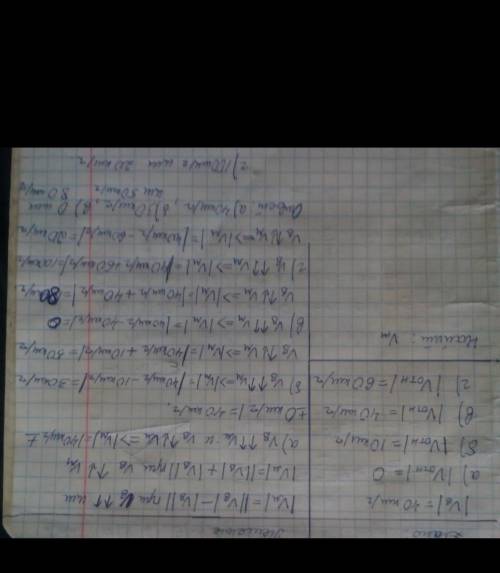 Дано
|Vв| = 40 км/ч
а) |Vотн| = 0
б) |Vотн| = 10 км/ч
в) |Vотн| = 40 км/ч
г) |Vотн| = 60 км/ч
Найти: Vм
Решение
|Vм| = ||Vв| - |Vв|| при Vв ↑↑ или
|Vм| = ||Vв| + |Vв|| при Vв ↑↓ Vм
а) Vв ↑↑ Vм и Vв ↑↓ Vм => |Vм| = |40 км/ч ±
± 0 км/ч| = 40 км/ч.
б) Vв ↑↑ Vм => |Vм| = |40 км/ч - 10 км/ч| = 30 км/ч
Vв ↑↓ Vм => |Vм| = |40 км/ч + 10 км/ч| = 50 км/ч
в) Vв ↑↑ Vм => |Vм| = |40 км/ч - 40 км/ч| = 0
Vв ↑↓ Vм => |Vм| = |40 км/ч + 40 км/ч| = 80 км/ч
г) Vв ↑↑ Vм => |Vм| = |40 км/ч + 60 км/ч| = 100 км/ч
Vв ↑↓ Vм => |Vм| = |40 км/ч - 60 км/ч| = 20 км/ч
Ответ: а) 40 км/ч, б) 30 км/ч, в) 0 или
или 50 км/ч 80 км/ч
г) 100 км/ч или 20 км/ч